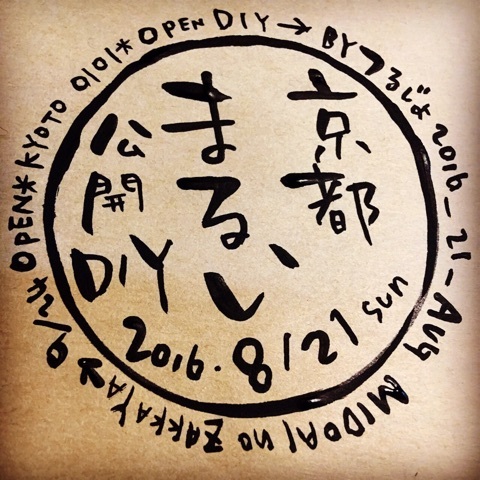 京都
まるい
公開
DIY
2016.8/21 sun
OPEN DIY→BYつるじょ 2016_21_Aug MIDORI no ZAKKAYA→9/24 OPEN*KYOTO 0101*